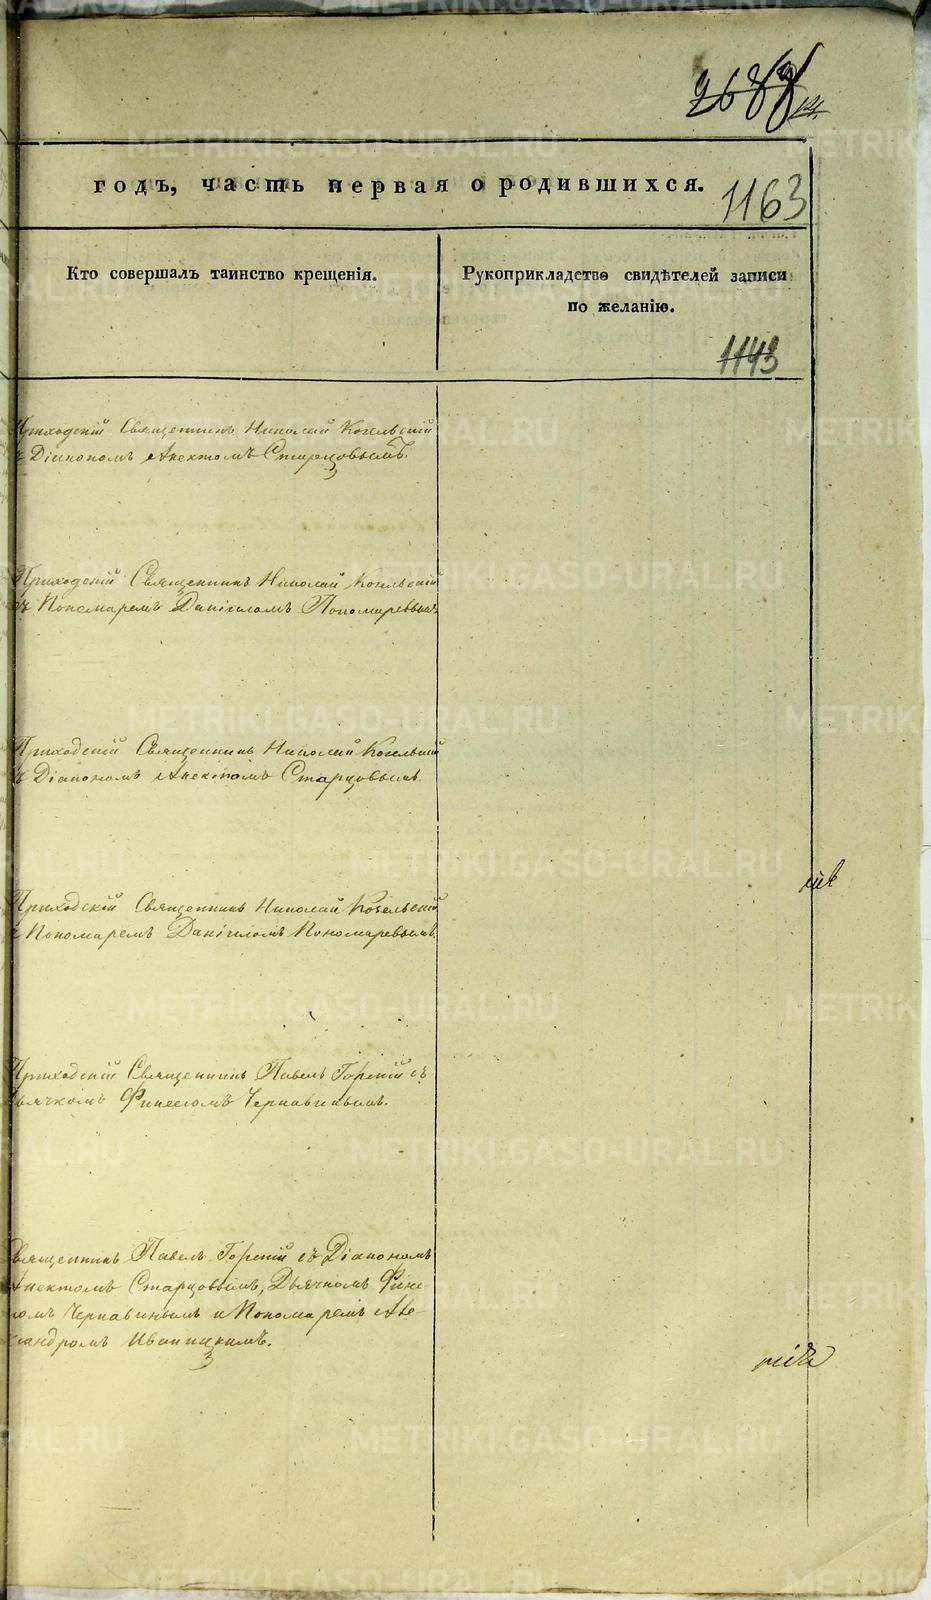 годъ, часть первая о родившихся.
1163
Кто совершалъ таинство крещенія.
Рукоприкладство свидѣтелей записи
по желанію.
1143
Приходскій Священникъ Николай Когельскій
съ Діакономъ Анектомъ Старцовымъ.
Приходскій Священникъ Николай Когельскій
съ Пономаремъ Даніиломъ Пономаревымъ
Приходскій Священникъ Николай Когельскій
съ Діакономъ Анектомъ Старцовымъ.
Приходскій Священникъ Николай Когельскій
съ Пономаремъ Даніиломъ Пономаревымъ
Приходскій Священникъ Павелъ Горскій съ
Дьячкомъ Финеесомъ Чернавинымъ.
Священникъ Павелъ Горскій съ Діакономъ
Анектомъ Старцовымъ, Дьячкомъ Фине-
сомъ Чернавинымъ и Пономаремъ Але-
ксандромъ Иваницкимъ.
METRIKI.GASO-URAL.RU